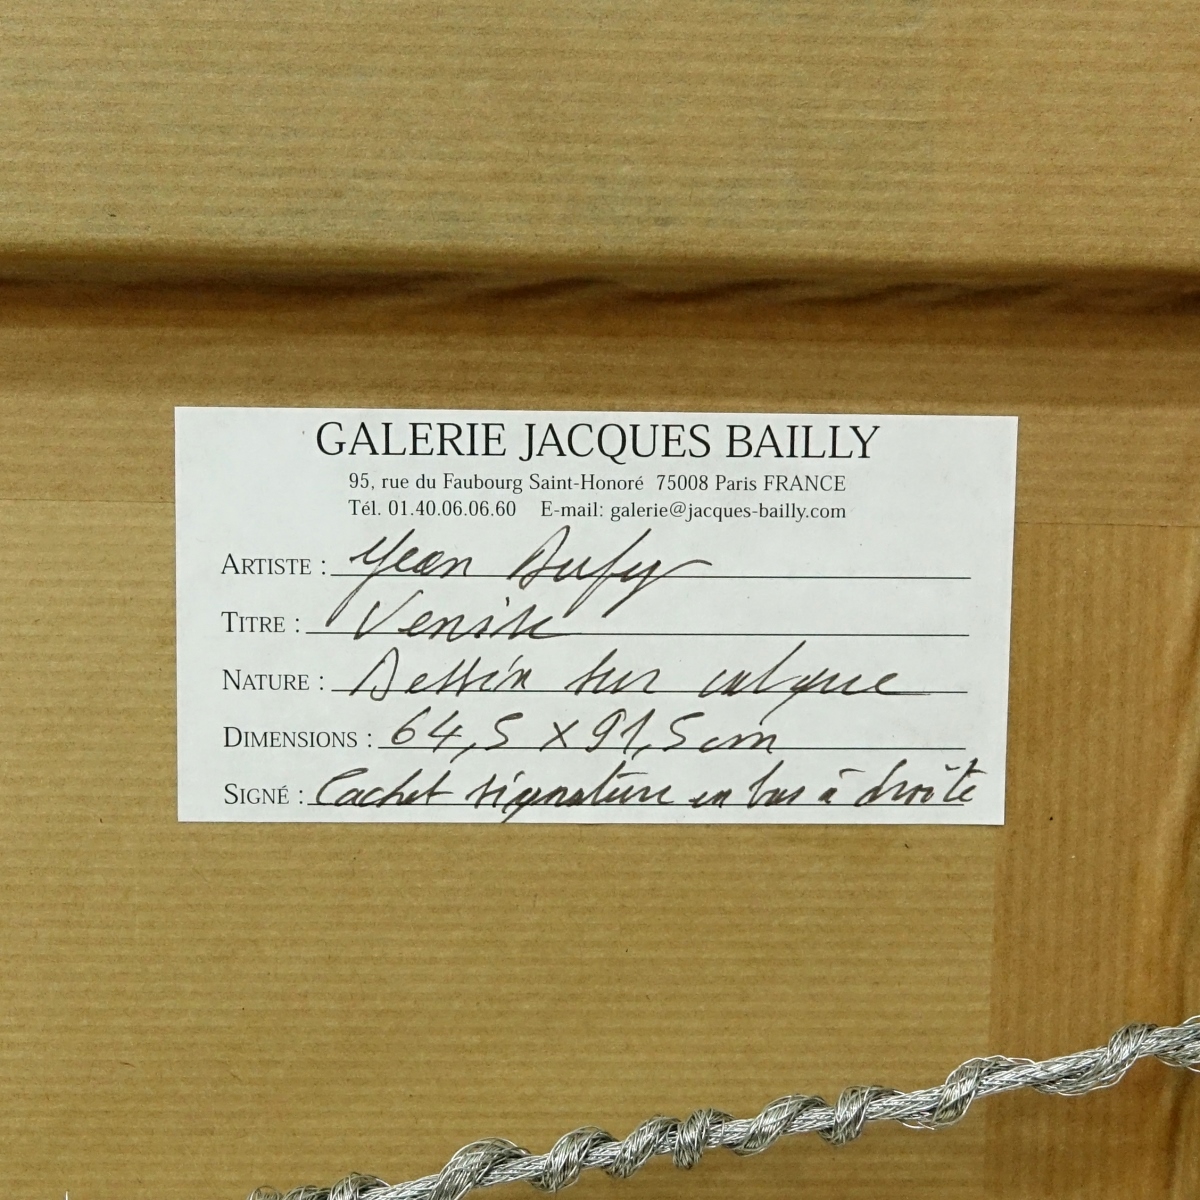 GALERIE JACQUES BAILLY
95, rue du Faubourg Saint-Honoré 75008 Paris FRANCE
Tél. 01.40.06.06.60 E-mail: galerie@jacques-bailly.com
ARTISTE : Jean Dufy
TITRE : Venise
NATURE : Dessin sur calque
DIMENSIONS : 64,5 x 91,5 cm
SIGNÉ : Cachet signature en bas à droite